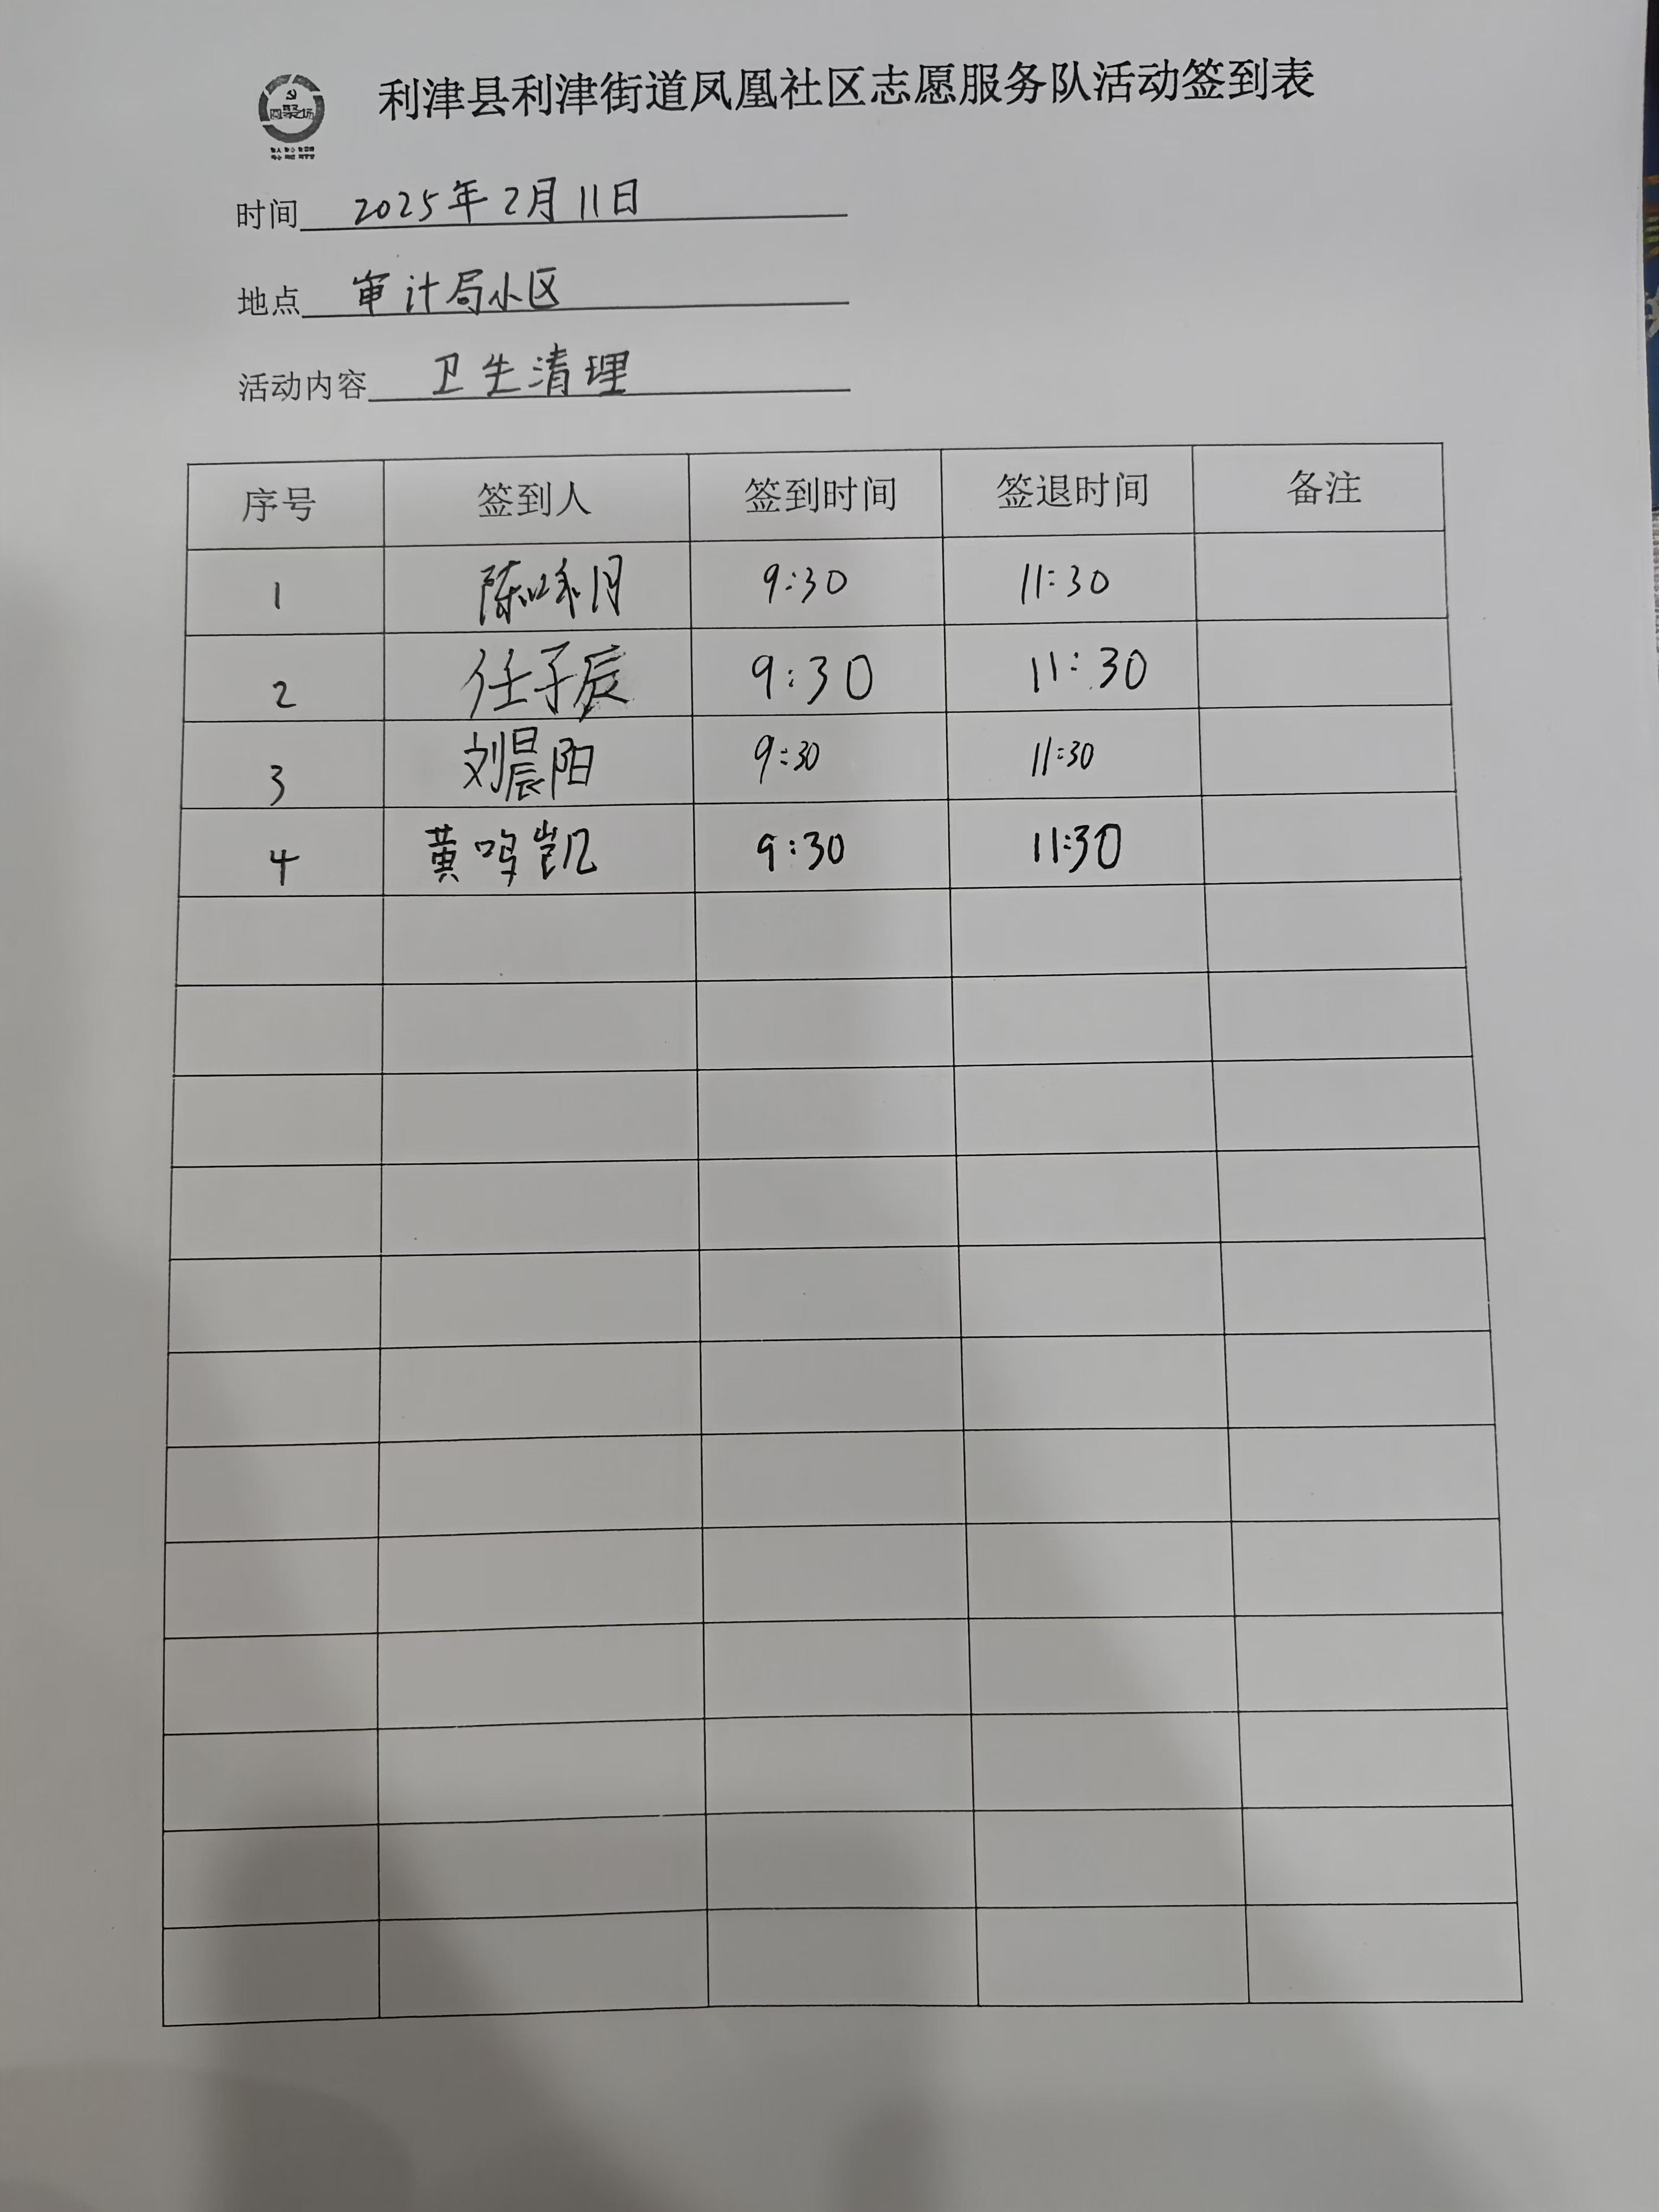 利津县利津街道凤凰社区志愿服务队活动签到表
时间 2025年2月11日
地点 审计局小区
活动内容 卫生清理
序号 签到人 签到时间 签退时间 备注
1 陈咏月 9:30 11:30
2 任子辰 9:30 11:30
3 刘晨阳 9:30 11:30
4 黄鸣凯 9:30 11:30